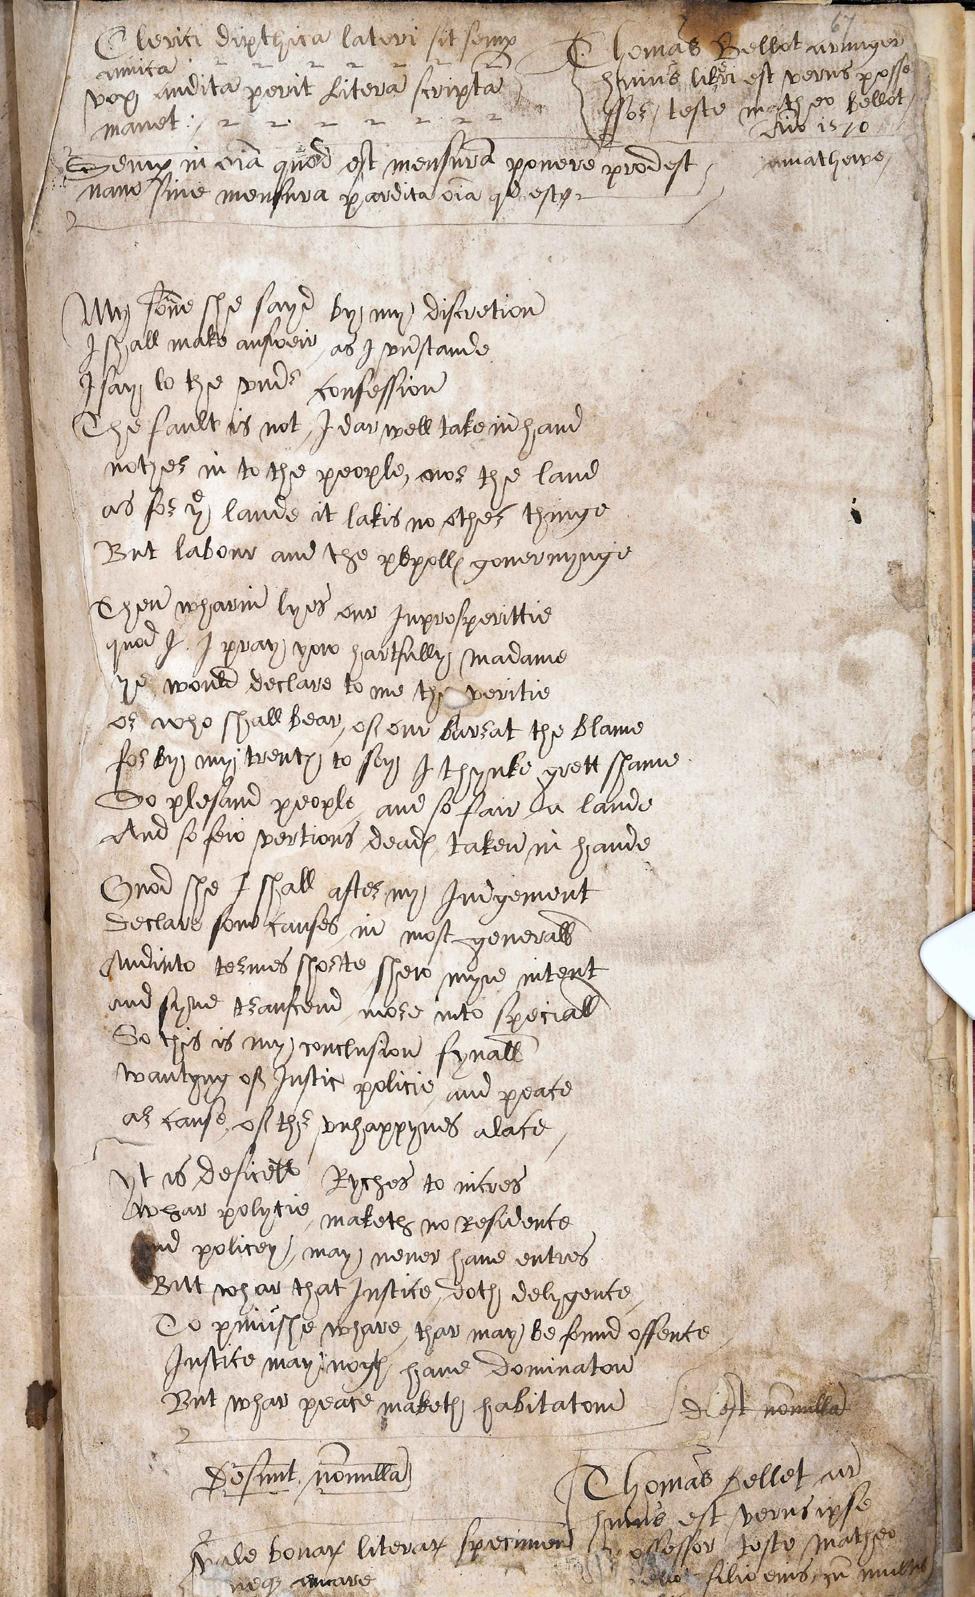 67
Clerici dipthica lateri sit semp
amica
vox audita perit litera scripta
manet :
Thomas Bellot armiger
huius libri est verus posse
ssor / teste matheo Bellot /
1570
Semp in oia quod est mensura ponere prodest /
nanc sine mensura pardita oia qd est
My sone she sayd by my discretion
I shall make answeir as I vnstande
I say to the vnds confession
The fault is not I dar well take in hand
nother in to the people nor the land
as for ye lande it lakis no other thinge
But labour and the governynge
Then wharin lyes our Inprosperittie
quod I. I pray yow hartfully madame
ye would declare to me the veritie
or who shall bear of our barrat the blame
for by my treuth to sey I thynke grett shame
So plesand people and so fair a lande
And so few vertious dead taken in hande
Quod she I shall after my Iudgement
Declare som causes in most generall
And into termes shorte shew myne intent
and syne transcend more into speciall
So this is my conclusion fynall
wantyng of Iustic policie and peace
ar cause of this vnhappynes alace /
yt is deficell Ryches to incres
whar polytie maketh no Residence
And policey may never have entres
Bitt whar that Iustice doth delygence
To punishe whare thar may be found offence
Iustice may noght have Dominatoun
But whar peace maketh habitatoun
nonnulla
Desunt nonnulla
Thomas Bellet ar
huius est verus ipse
possessor teste matheo
filio eius
vale bonar literar specimen
neq